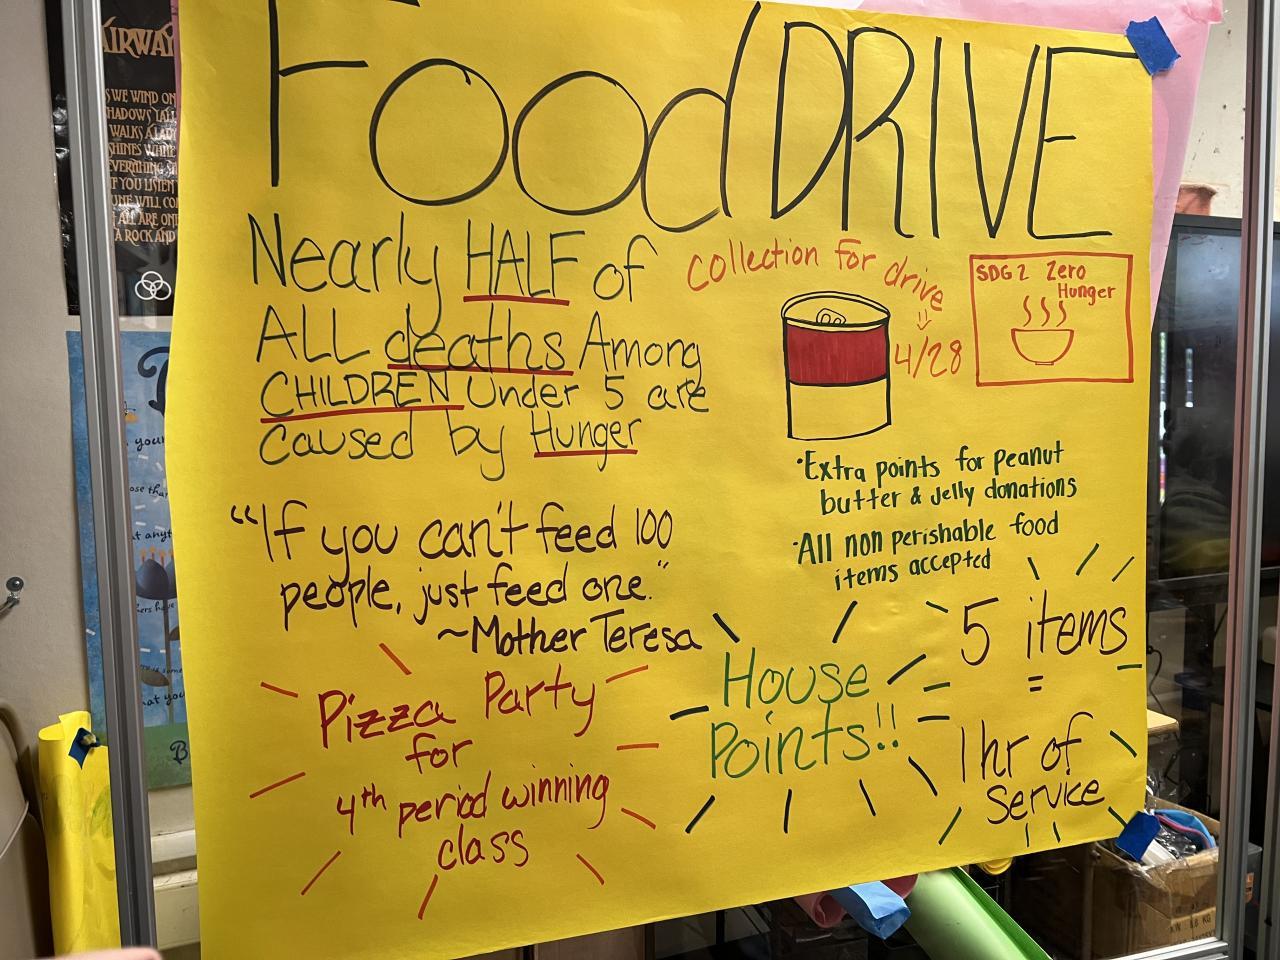 Food DRIVE
Nearly HALF of
ALL deaths Among
CHILDREN Under 5 are
caused by Hunger
collection for drive
4/28
SDG 2 Zero
Hunger
·Extra points for peanut
butter & jelly donations
·All non perishable food
items accepted
"If you can't feed 100
people, just feed one."
~Mother Teresa
Pizza Party
for
4th period winning
class
House
Points!!
5 items
=
1 hr of
service
WE WIND ON
WALKS A
IF YOU LISTEN
ALL ARE ONE
A ROCK AND